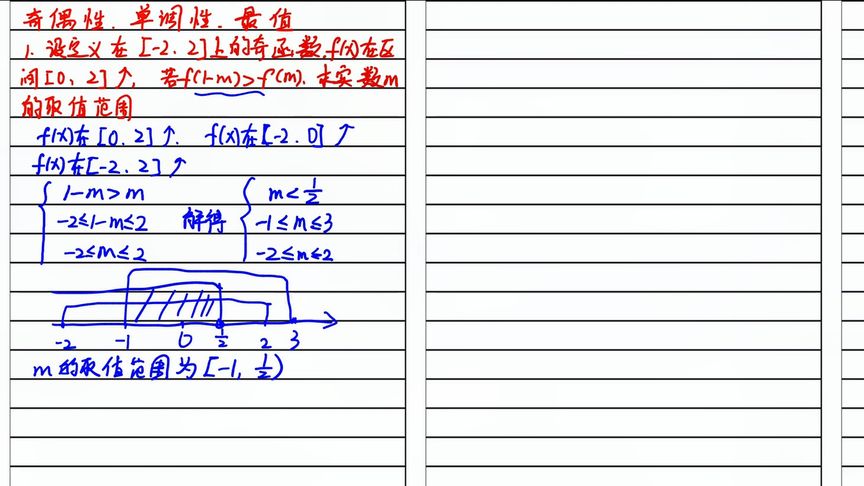 奇偶性.单调性.最值
1.设定义在[-2.2]上的奇函数.f(x)在区
间[0,2]↑,若f(1-m)>f(m).求实数m
的取值范围
f(x)在[0.2]↑. f(x)在[-2.0]↑
f(x)在[-2.2]↑
{ 1-m>m { m<1/2
-2≤1-m≤2 解得 -1≤m≤3
-2≤m≤2 -2≤m≤2
-2 -1 0 1/2 2 3
m的取值范围为[-1,1/2)